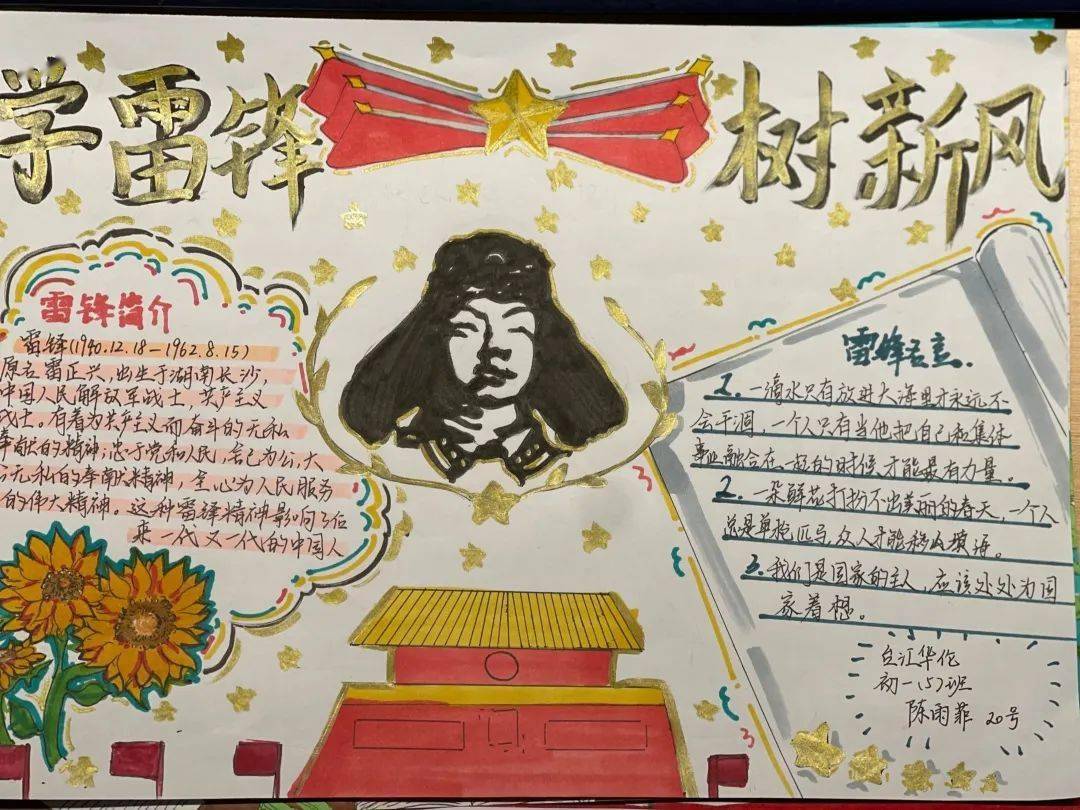 学雷锋 树新风
雷锋简介
雷锋(1940.12.18—1962.8.15)
原名雷正兴,出生于湖南长沙,
中国人民解放军战士,共产主义
战士。有着为共产主义而奋斗的无私
奉献的精神;忠于党和人民,舍己为公,大
公无私的奉献精神,全心为人民服务
的伟大精神。这种雷锋精神影响了后
来一代又一代的中国人
雷锋名言.
1.一滴水只有放进大海里才永远不
会干涸,一个人只有当他把自己和集体
事业融合在一起的时候才能最有力量。
2.一朵鲜花打扮不出美丽的春天,一个人
总是单枪匹马,众人才能移山填海。
3.我们是国家的主人,应该处处为国
家着想。
台江华伦
初一(5)班
陈雨菲 20号